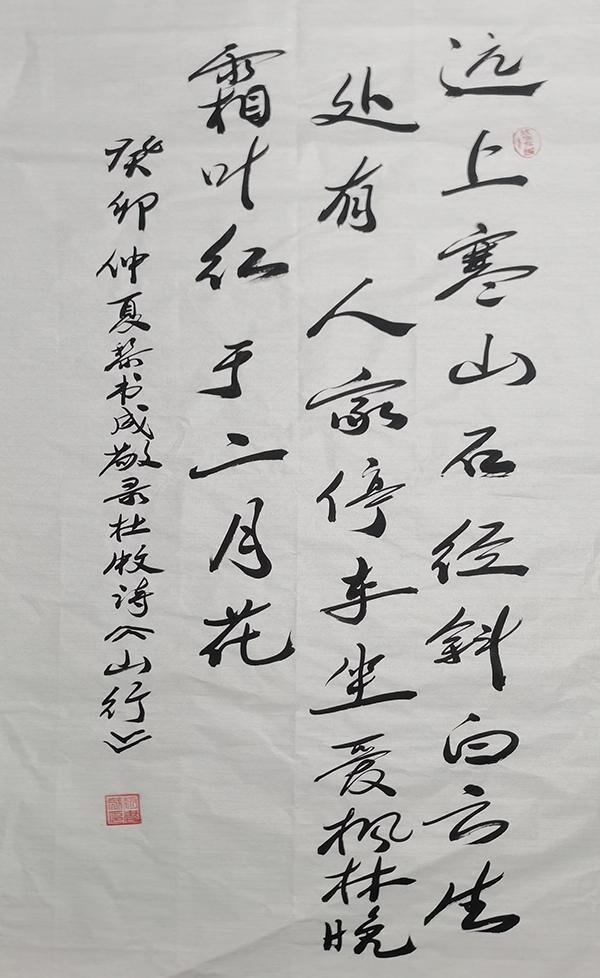 远上寒山石径斜白云生
处有人家停车坐爱枫林晚
霜叶红于二月花
癸卯仲夏黎书成敬录杜牧诗《山行》